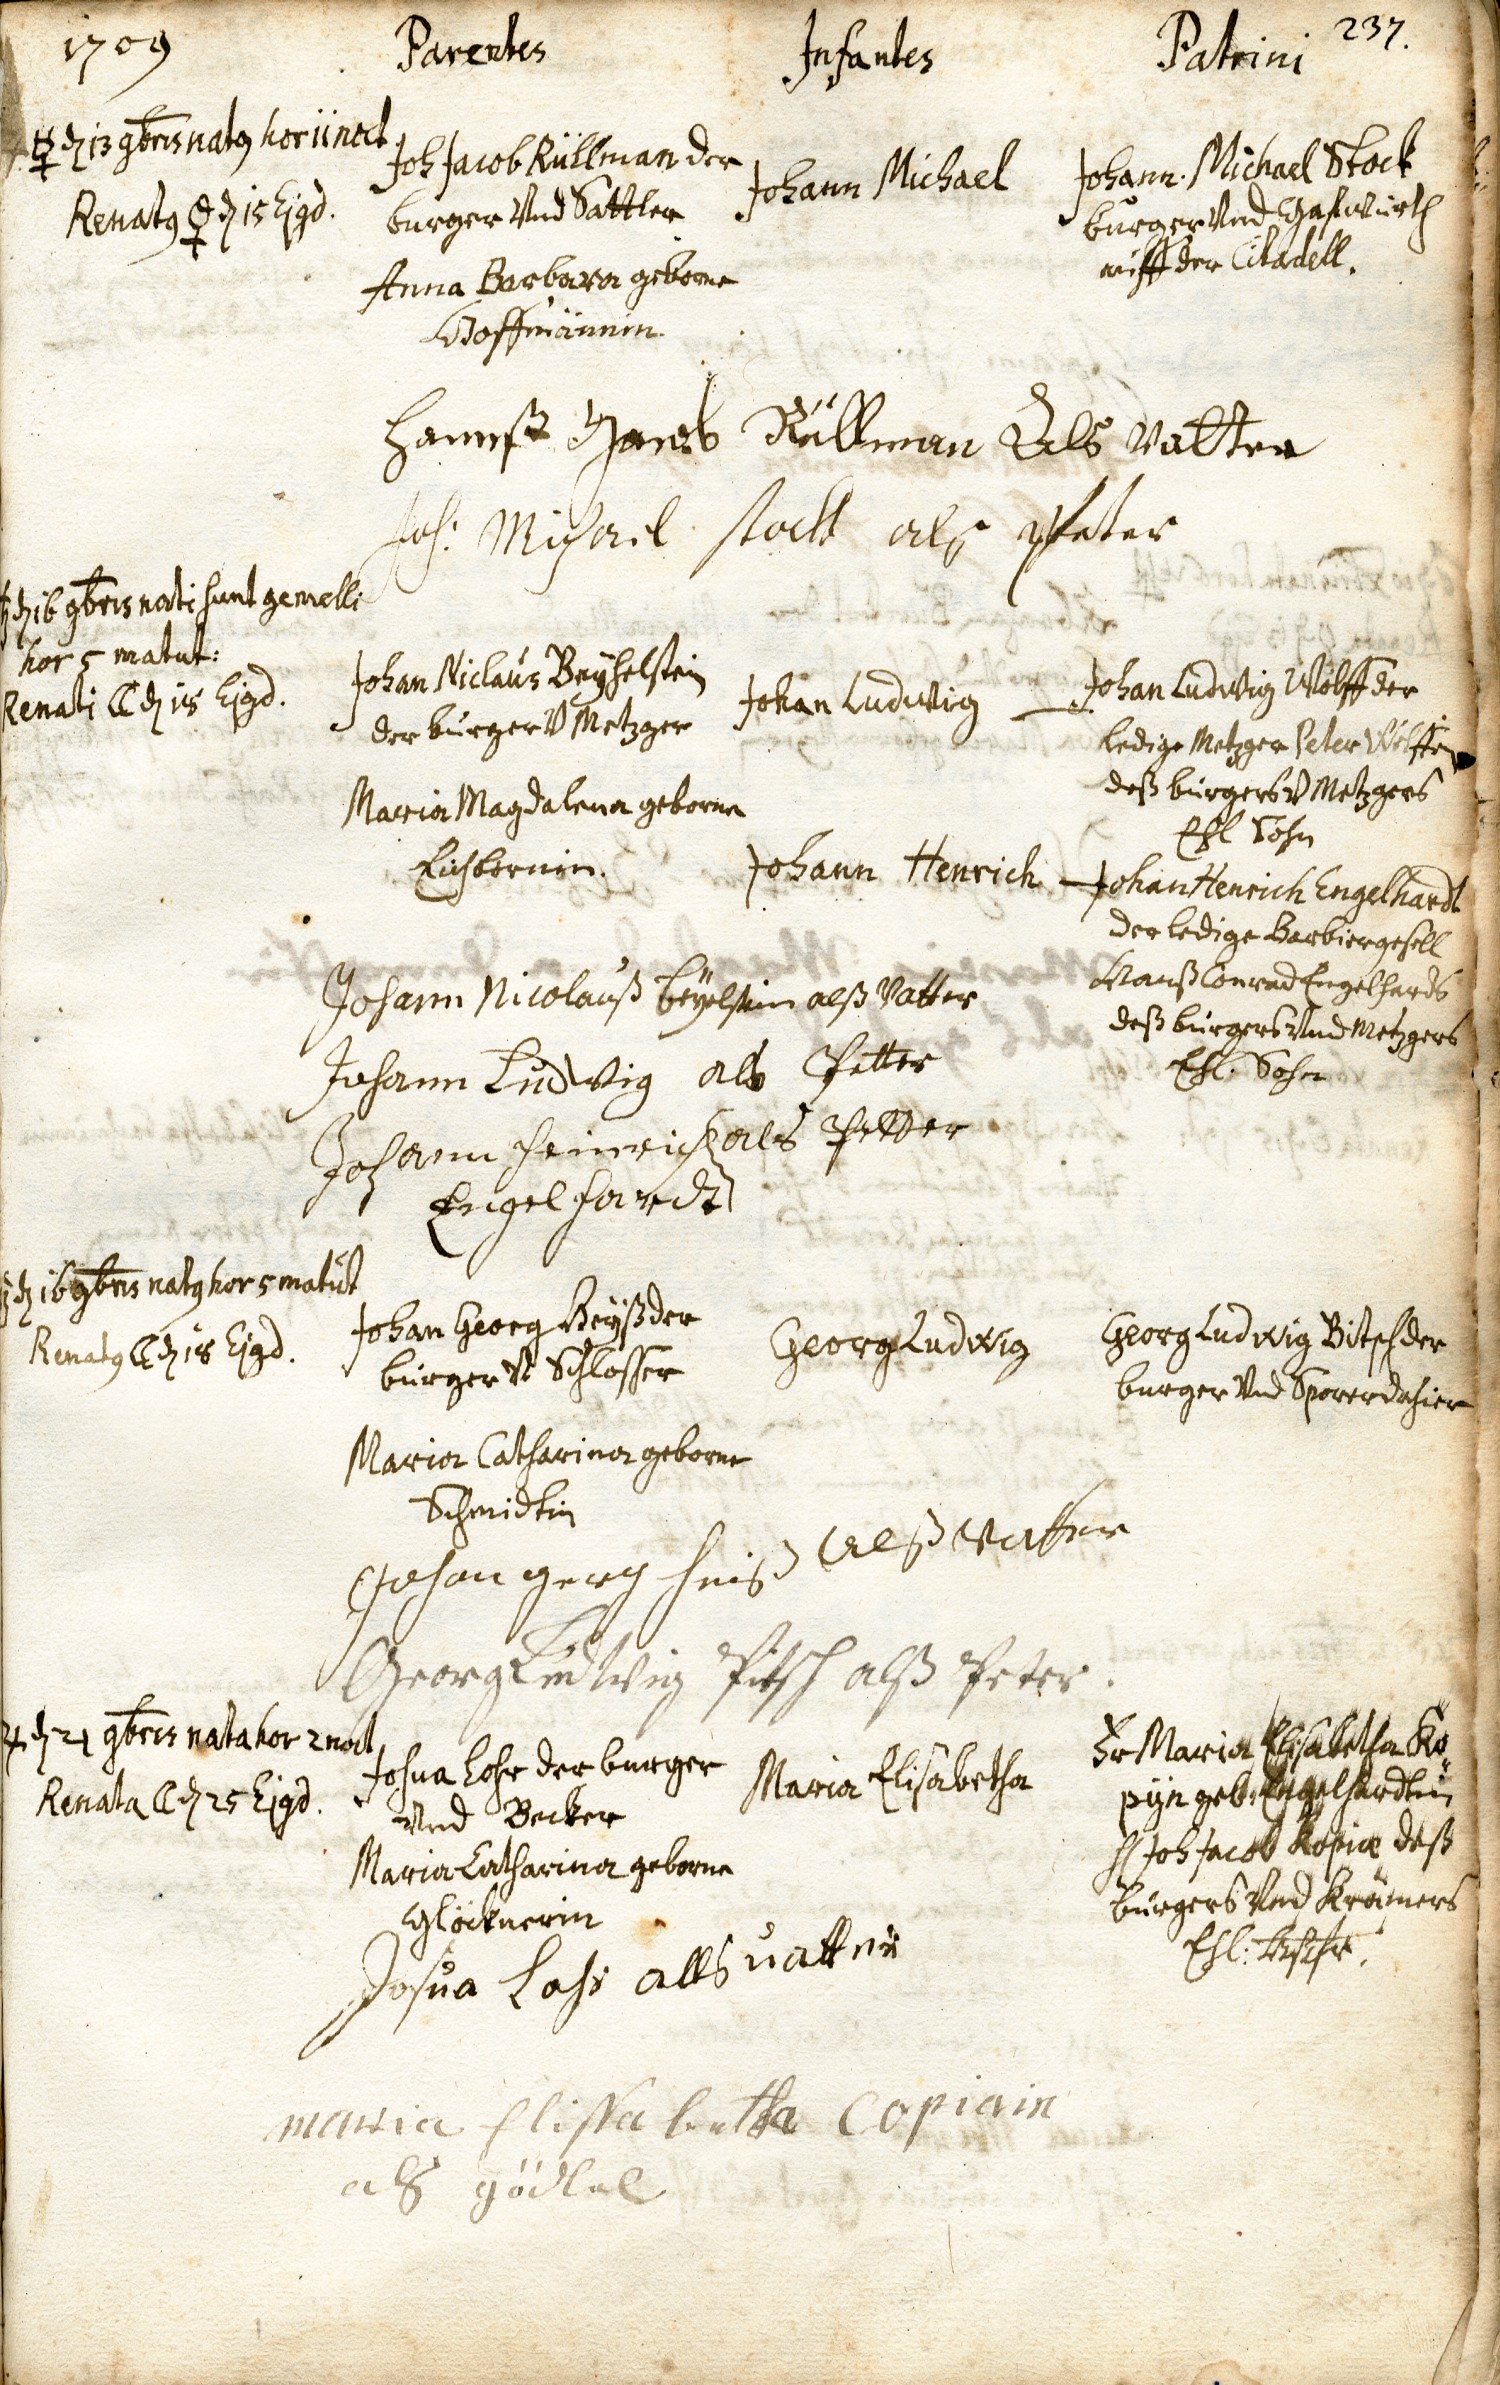 1709 Parentes Infantes Patrini 237.
d 13 9bris nat9 hor 11 noct
Renat9 d 15 Ejgd.
Joh Jacob Rüllman der
burger Vnd Sattler
Anna Barbara geborne
Hoffmännin
Johann Michael
Johann Michael Stock
burger Vnd Gastwürth
auff der Citadell.
Hannß Jacob Rüllman Als Vatter
Joh: Michael Stock als Peter
d 16 9bris nati sunt gemelli
hor 5 matut:
Renati ☾ d 18 Ejgd.
Johan Niclaus Beyhelstein
der burger V Metzger
Maria Magdalena geborne
Eichbornin.
Johan Ludwig —
Johan Ludwig Wölff der
ledige Metzger Peter Wölffen
deß burgers V Metzgers
Ehl Sohn
Johann Henrich —
Johan Henrich Engelhardt
der ledige Barbiergesell
Hanß Conrad Engelhards
deß burgers Vnd Metzgers
Ehl. Sohn
Johann Nicolauß beyelstein alß Vatter
Johann Ludwig als Petter
Johann Heinrich als Petter
Engelhardt
d 16 9bris nat9 hor 5 matut
Renat9 ☾ d 18 Ejgd.
Johan Georg Heyß der
burger V Schlosser
Maria Catharina geborne
Schmidtin
Georg Ludwig
Georg Ludwig Bitsch der
burger Vnd Sporer dahier
Johan gerg heiß alß Vatter
Georg Ludwig Pitsch alß Peter.
♃ d 21 9bris nata hor 2 noct
Renata ☾ d 25 Ejgd.
Josua Lohr der burger
Vnd Becker
Maria Catharina geborne
Glöcknerin
Maria Elisabetha
Fr Maria Elisabetha Ko-
pyn geb. Engelhardtin
H Joh Jacob Kopia deß
burgers Vnd Krämers
Ehl:
Josua Lohr alls vatter
maria Elissabetha Copiain
als gödtel